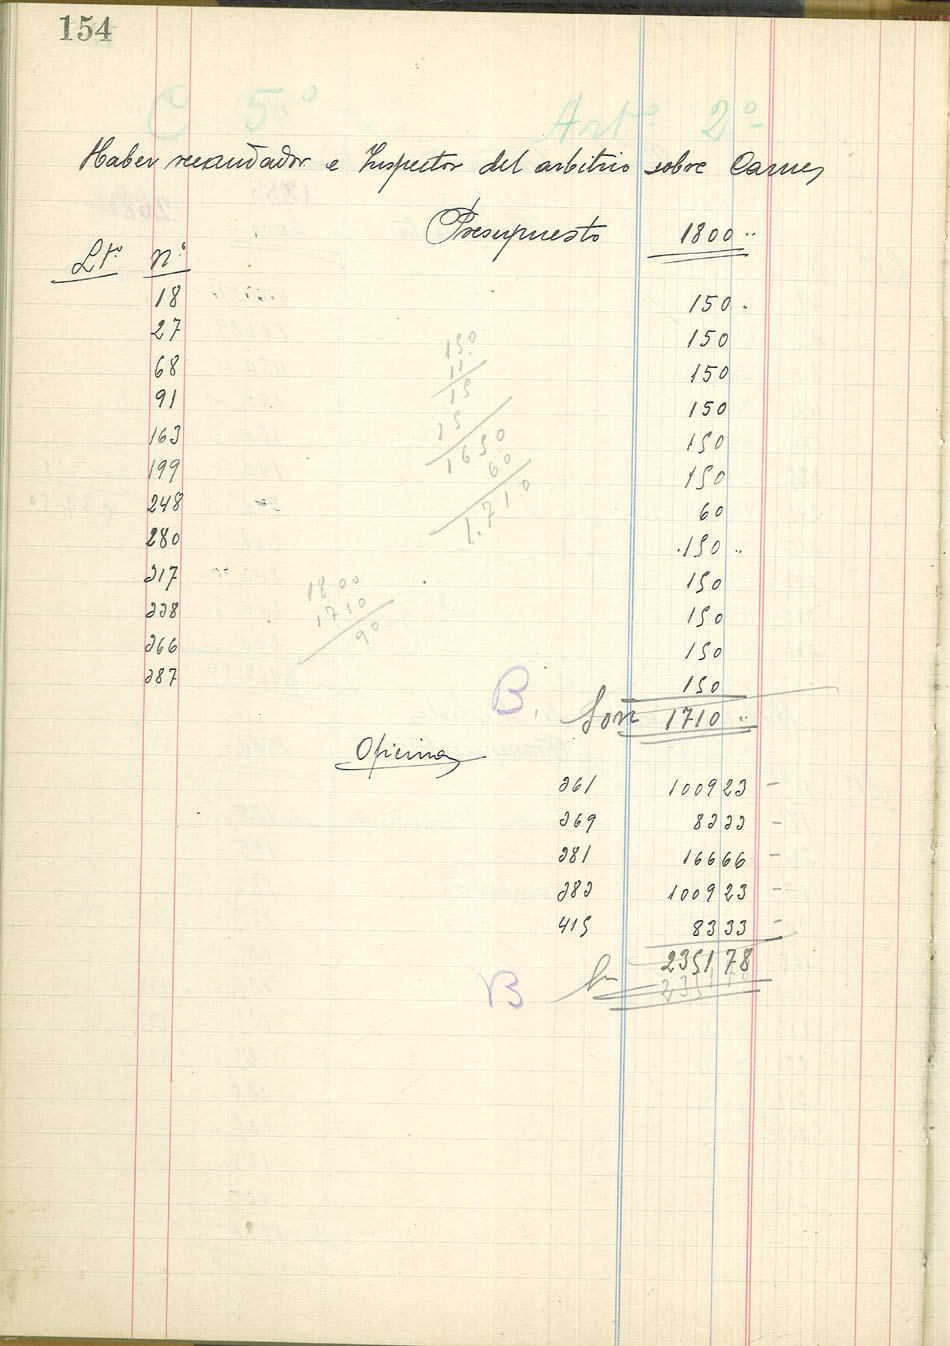 154
C 5º Artº 2º
Haber recaudador e Inspector del arbitrio sobre Carnes
Presupuesto 1800 ..
Lt. nº
18 150 .
27 150
68 150
91 150
163 150
199 150
248 60
280 150 ..
317 150
338 150
366 150
387 150
B. Son 1710 ..
150
11
15
15
1650
60
1.710
1800
1710
90
Oficina
361 1009 23 -
369 83 33 -
381 166 66 -
383 1009 23 -
415 83 33 -
B 2351 78
2351 78